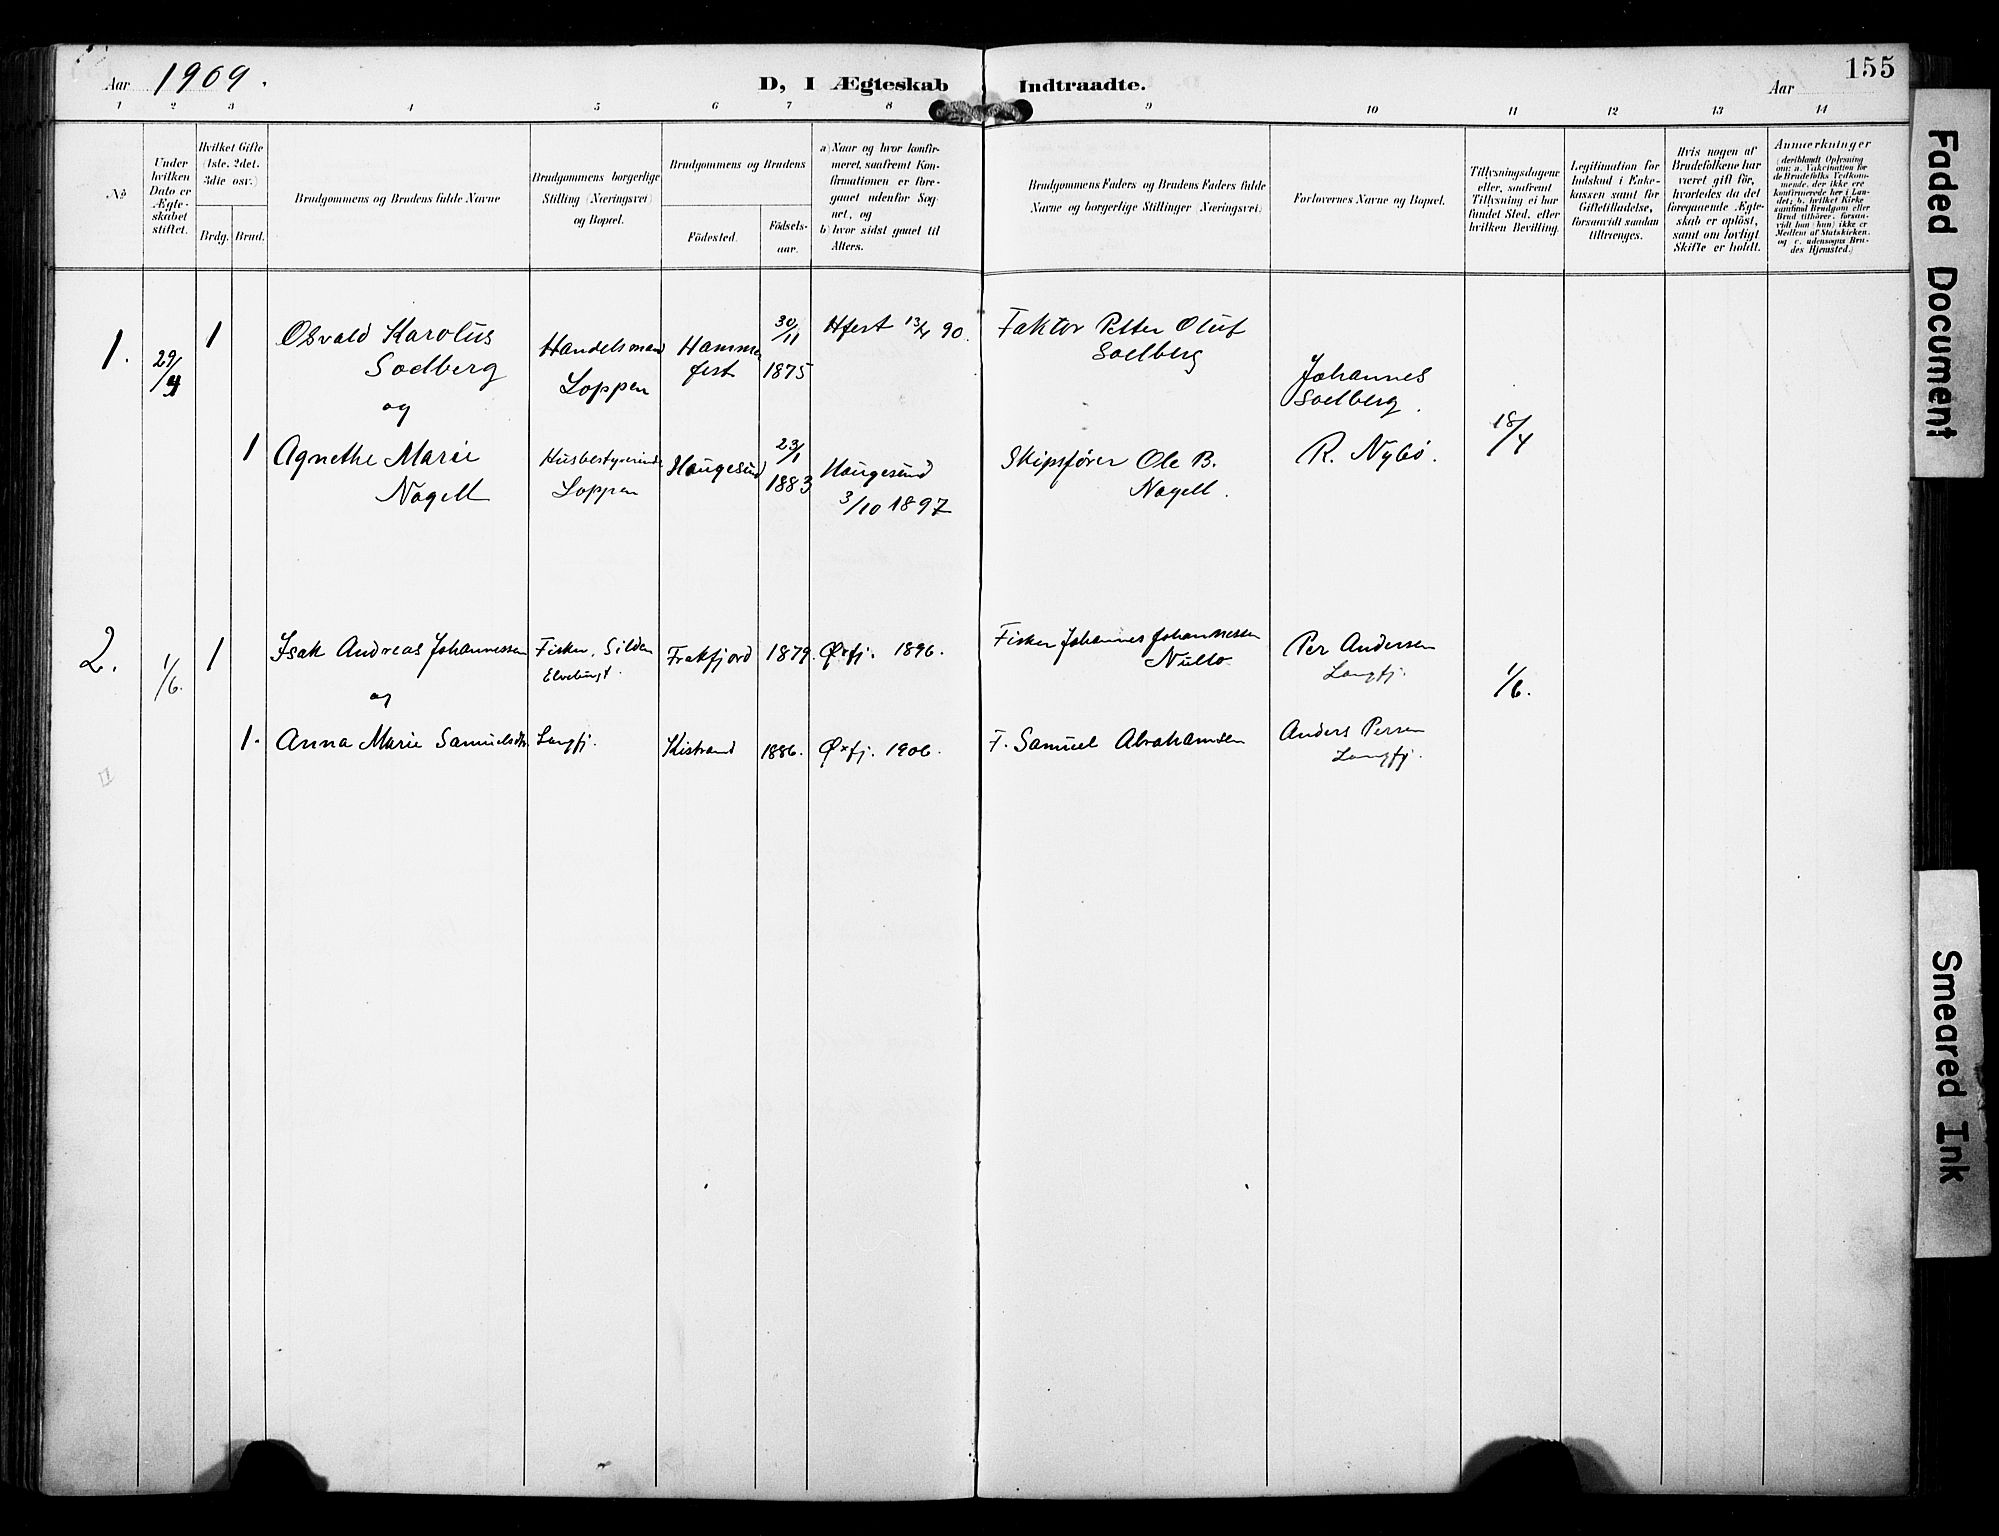 155
Aar 1909.
D, I Ægteskab Indtraadte.
Aar
1 2 3 4 5 6 7 8 9 10 11 12 13 14
No
Under
hvilken
Dato er
Ægte-
skabet
stiftet.
Hvilket Gifte
(1ste, 2det,
3die osv.)
Brdg. Brud.
Brudgommens og Brudens fulde Navne
Brudgommens borgerlige
Stilling (Næringsvei)
og Bopæl.
Brudgommens og Brudens
Födested.
Födsels-
aar.
a) Naar og hvor konfir-
meret, saafremt Kon-
firmationen er fore-
gaaet udenfor Sog-
net, og
b) hvor sidst gaaet til
Alters.
Brudgommens Faders og Brudens Faders fulde
Navne og borgerlige Stillinger (Næringsvei)
Forlovernes Navne og Bopæl.
Tillysningsdagene
eller, saafremt
Tillysning ei har
fundet Sted, efter
hvilken Bevilling.
Legitimation for
Indskud i Enke-
kassen samt for
Giftetilladelse,
forsaavidt saadan
tiltrænges.
Hvis nogen af
Brudefolkene har
været gift för,
hvorledes da det
foregaaende Ægte-
skab er oplöst,
samt om lovligt
Skifte er holdt.
Anmærkninger
(deriblandt Oplysning
om: a. Vakcination for
de Brudefolks Vedkom-
mende, der ikke ere
konfirmerede her i Lan-
det; b. hvilket Kirke
samfund Brudgom eller
Brud tilhörer, forsaa-
vidt han (hun) ikke er
Medlem af Statskirken,
og c. udensogns Bru-
des Hjemsted.)
1. 29/4 1 Osvald Karolus
Soelberg
og
Handelsmand
Loppen
Hammer
fest
30/11
1875
Hfest 13/4 90.
Faktor Petter Oluf
Soelberg
Johannes
Soelberg.
18/4
1 Agnethe Marie
Nagell
Husbestyrerinde
Loppen
Haugesund
23/1
1883
Haugesund
3/10 1897
Skipsfører Ole B.
Nagell.
R. Nybö.
2. 1/6. 1 Isak Andreas Johannessen
og
Fisker, Silden
Frakfjord 1879. Øxfj. 1896.
Fisker Johannes Johannessen
Per Andersen
Langfj.
1/6.
1. Anna Marie Samuelsdtr. Langfj. Kistrand 1886. Øxfj. 1906.
F. Samuel Abrahamsen
Anders Persen
Langfj.
Faded Document
Smeared Ink